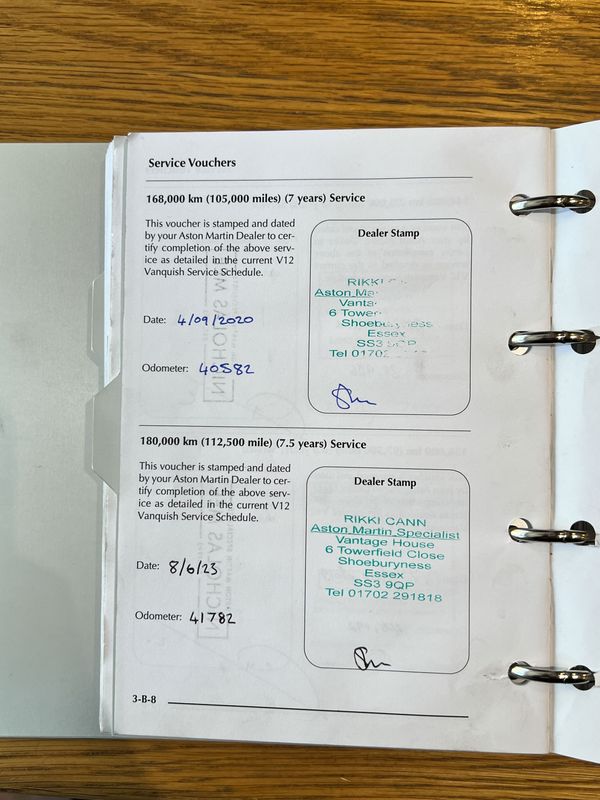 Service Vouchers
168,000 km (105,000 miles) (7 years) Service
This voucher is stamped and dated
by your Aston Martin Dealer to cer-
tify completion of the above serv-
ice as detailed in the current V12
Vanquish Service Schedule.
Date: 4/09/2020
Odometer: 40582
Dealer Stamp
RIKKI
Aston
6
Essex
SS3
Tel 01702
180,000 km (112,500 mile) (7.5 years) Service
This voucher is stamped and dated
by your Aston Martin Dealer to cer-
tify completion of the above serv-
ice as detailed in the current V12
Vanquish Service Schedule.
Date: 8/6/23
Odometer: 41782
Dealer Stamp
RIKKI CANN
Aston Martin Specialist
Vantage House
6 Towerfield Close
Shoeburyness
Essex
SS3 9QP
Tel 01702 291818
3-B-8